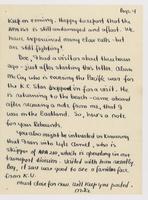 Pag. 4
Keep on coming. Happy to report that the
area is still undamaged and afloat. We
have experienced many close calls - but
are still fighting!
Doc, I had a visitor about three hours
ago - just after starting this letter. Alvin
McCoy who is covering the Pacific war for
the K.C. Star dropped in for a visit. He
is returning to the beach - came aboard
after receiving a note from me, that I
was in the Eastland. So, here's a note
for your Rebounds.
You also might be interested in knowing
that I ran into Lyle Cornet, who is
skipper of, who is operating in our
transport division. Visited with him recently
Boy, it sure was good to see a familiar face
from K.U.
Must close for now. Will keep you posted.
Mike